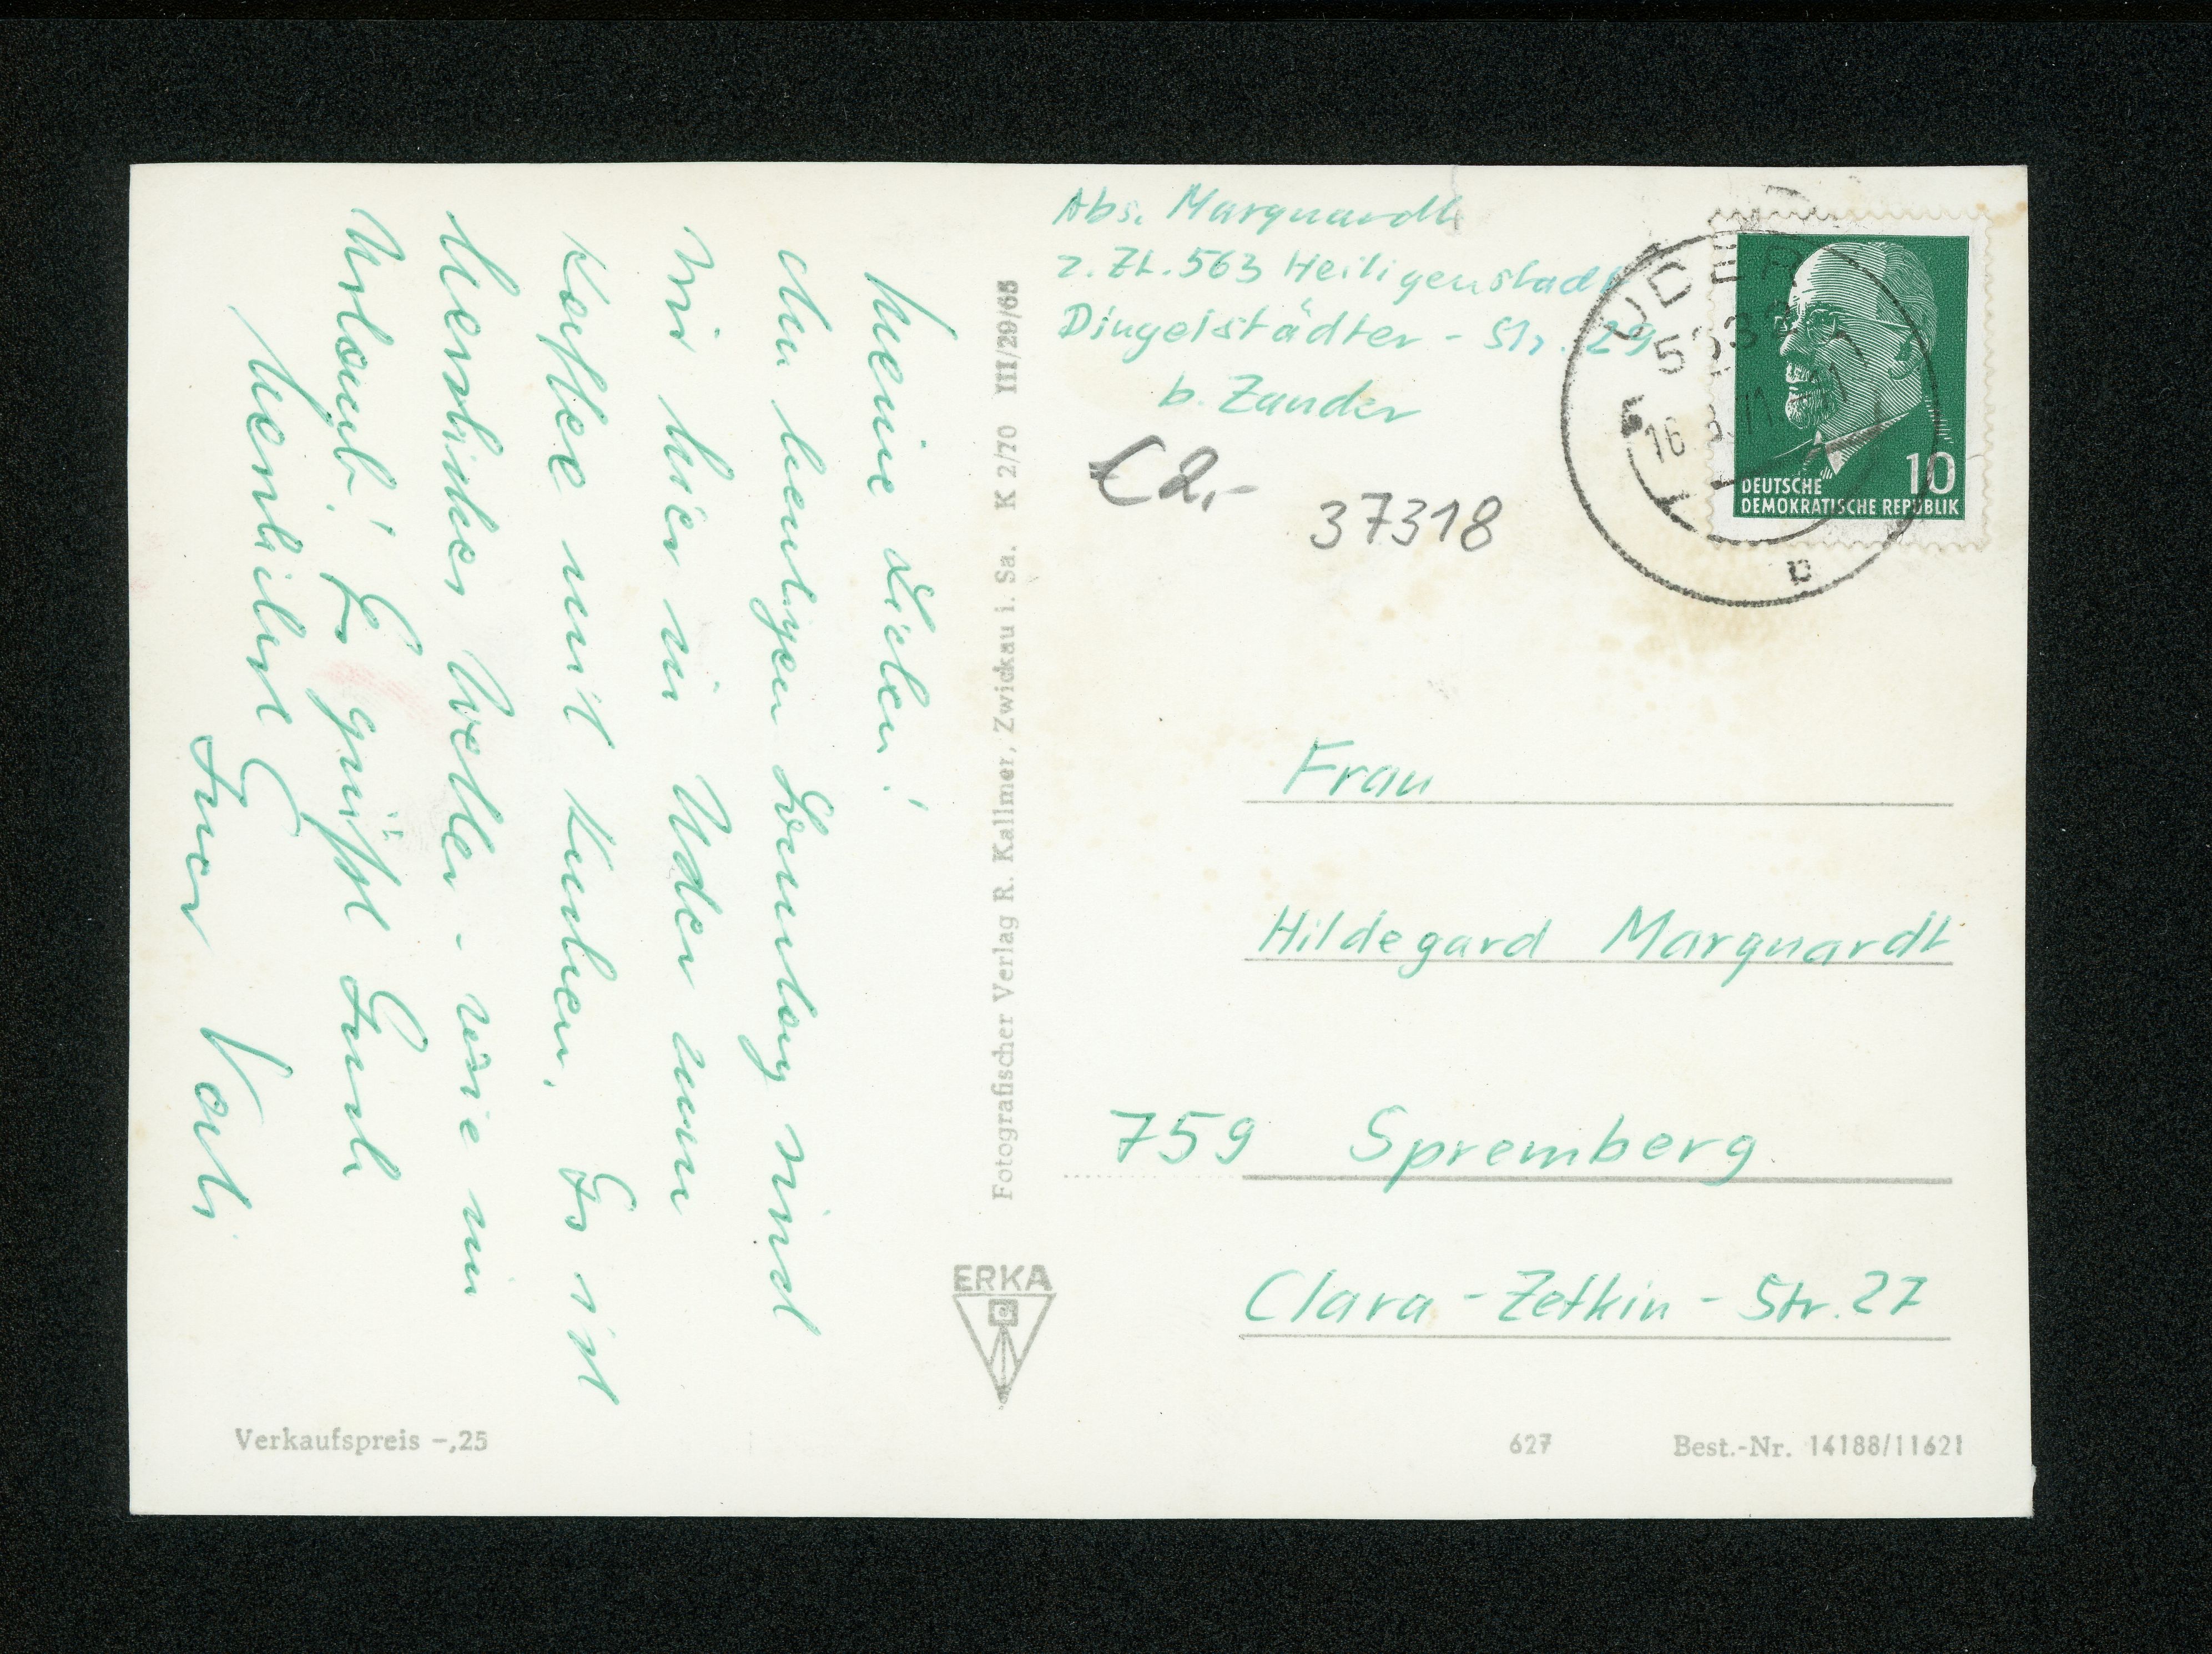 Meine Lieben!
Am heutigen Sonntag sind
wir hier in Uder zum
Kaffee mit Kuchen. Es ist
herrliches Wetter - wie im
Urlaub! Es grüßt Euch
herzlichst
Euer Vati
Verkaufspreis -,25
Fotografischer Verlag R. Kallmer, Zwickau i. Sa. K 2/70 III/29/65
ERKA
Abs. Marquardt
z. Zt. 563 Heiligenstadt
Dingelstädter - Str. 29
b. Zander
€2,-
37318
UDER
16
DEUTSCHE
DEMOKRATISCHE REPUBLIK
10
Frau
Hildegard Marquardt
759 Spremberg
Clara-Zetkin-Str. 27
627 Best.-Nr. 14188/11621